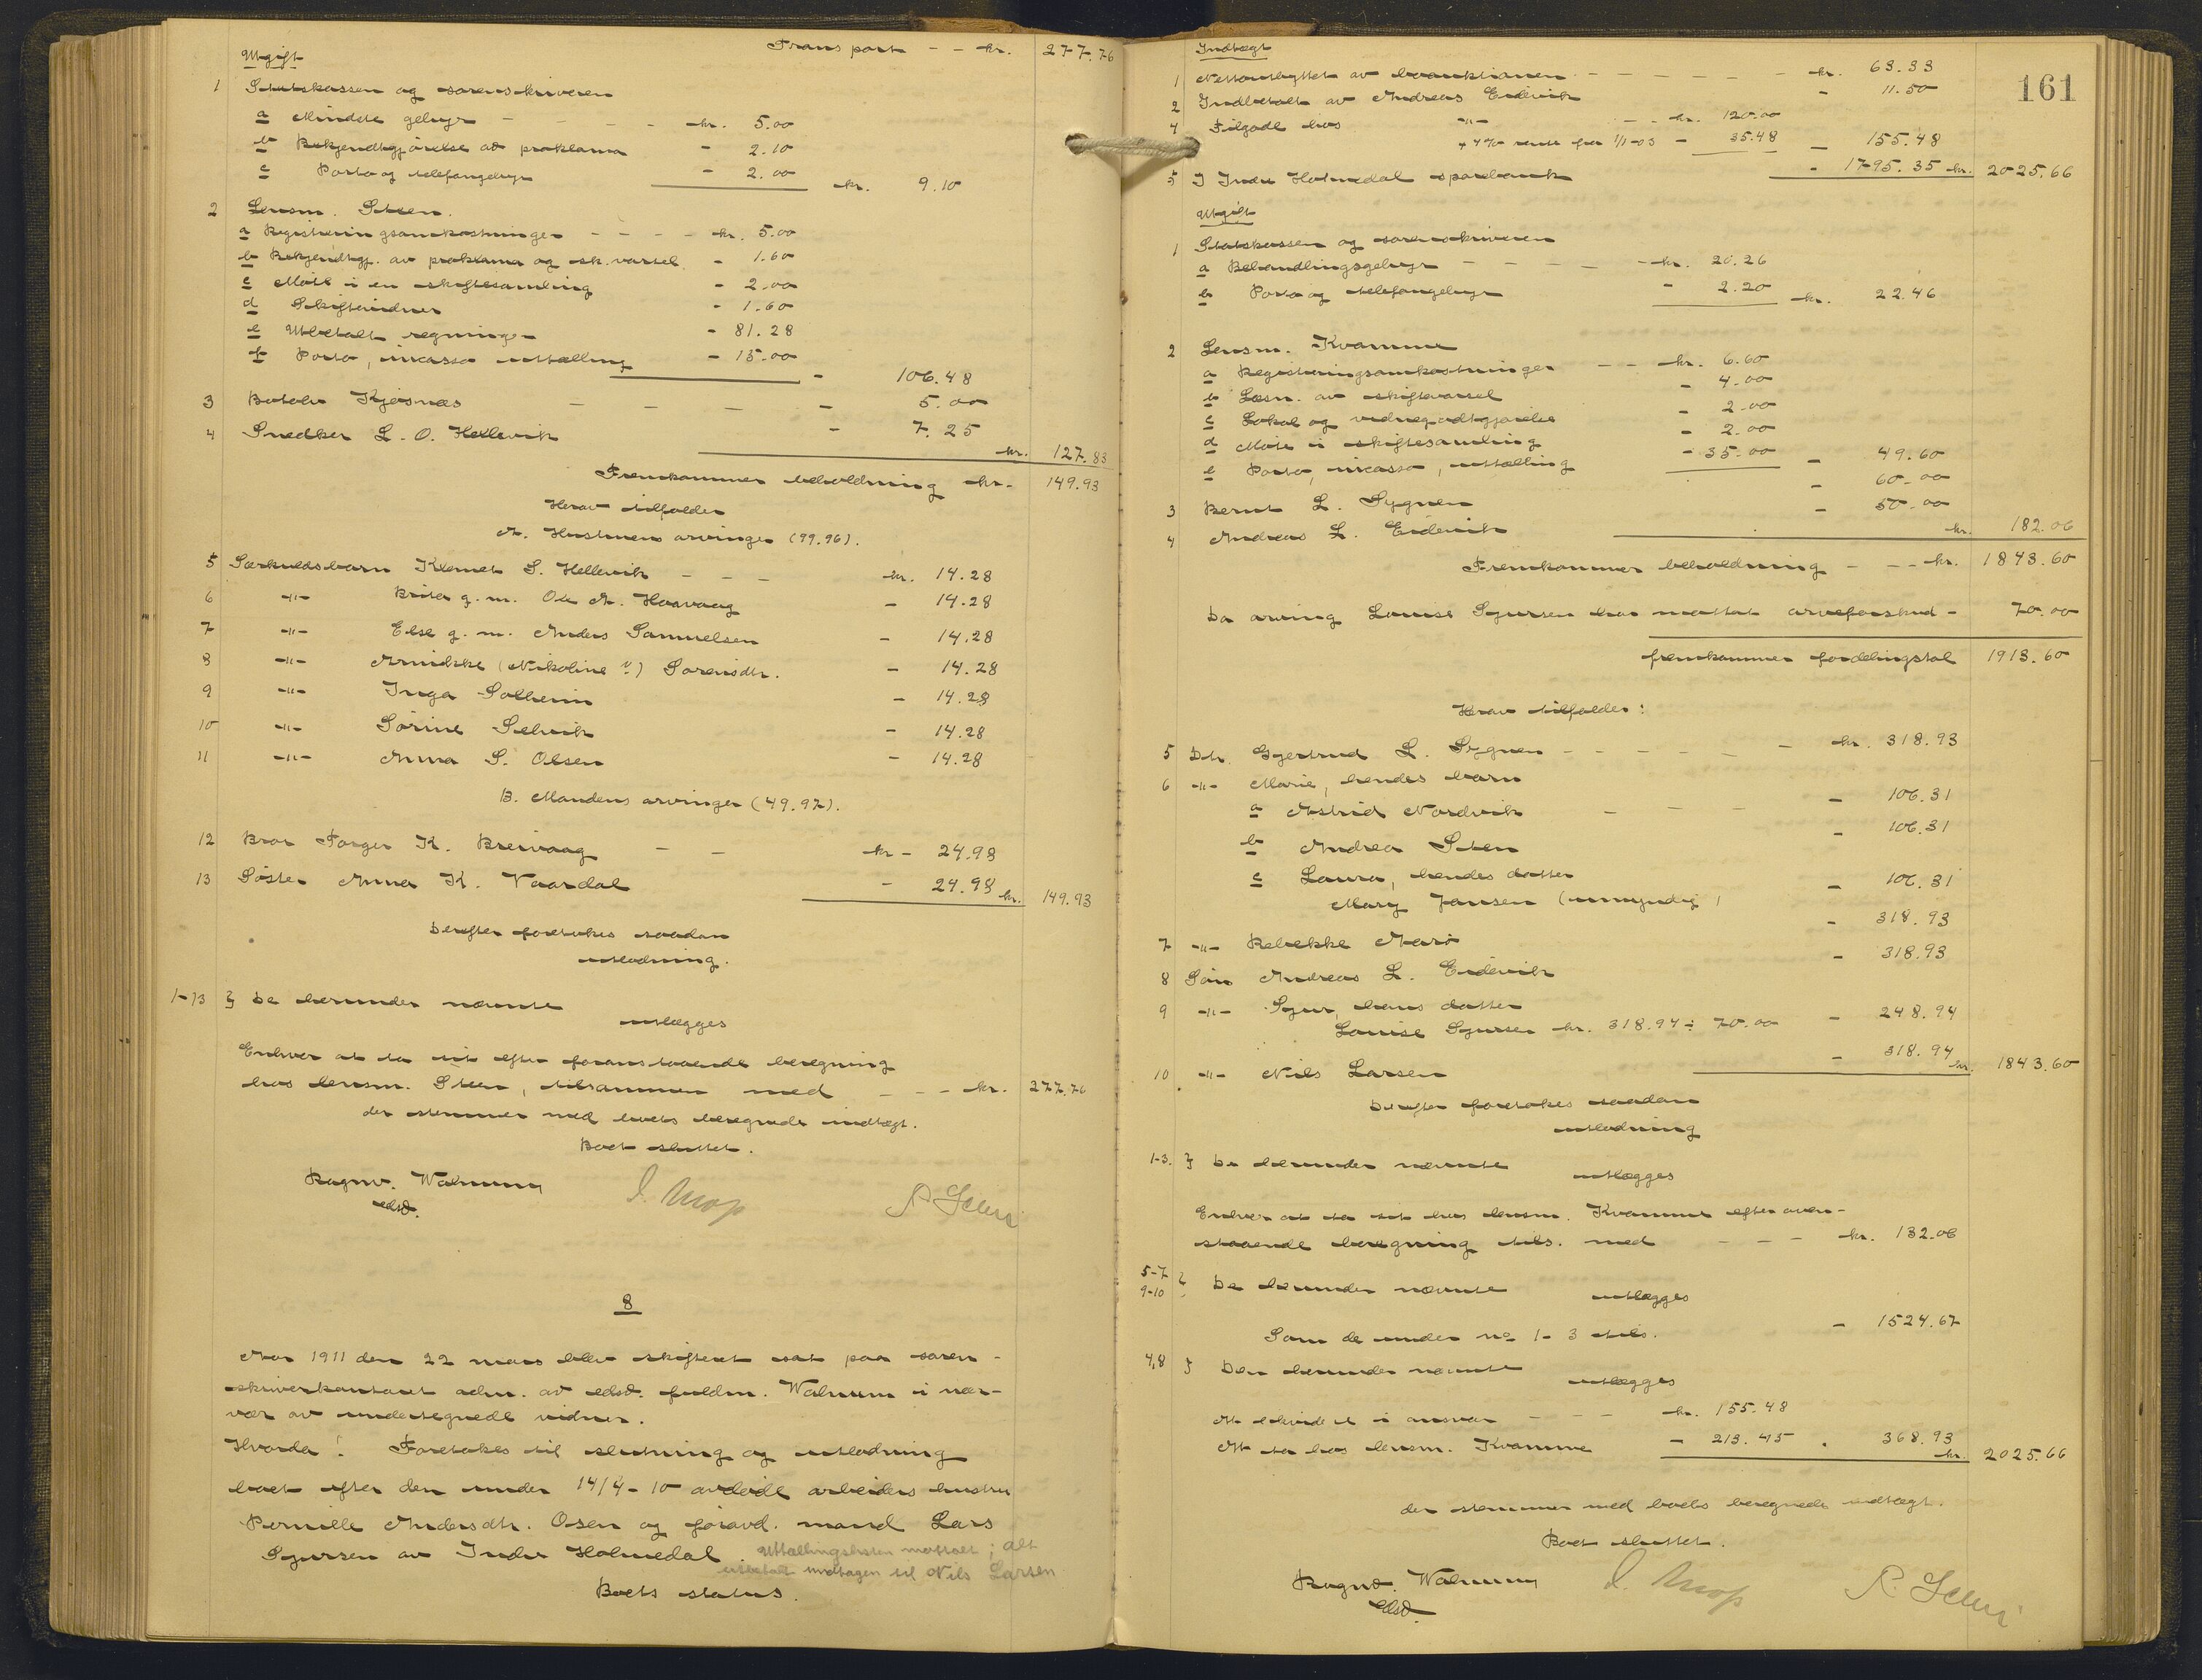 Utgift Transport - - kr. 277.76
1 Statskassen og sorenskriveren
a Mindste gebyr - - - - kr. 5.00
b Bekjendtgjörelse av proklama - 2.10
c Porto og telefongebyr - 2.00 kr. 9.10
2 Lensm. Steen.
a Registreringsomkostninger - - - kr. 5.00
b Bekjendtgj. av proklama og sk. varsel - 1.60
c Möte i en skiftesamling - 2.00
d Skiftevidner - 1.60
e Utbetalt regninger - 81.28
f Porto, incasso uttælling - 15.00 - 106.48
3 Botolv Kjøsnæs - - - - 5.00
4 Snedker L. O. Hellevik - 7.25 kr. 127.83
Fremkommer beholdning kr. 149.93
Herav tilfalder
A. Hustruens arvinger (99.96).
5 Særkuldsbarn Klemet S. Hellevik - - - kr. 14.28
6 -"- Brita g. m. Ole A. Haavaag - 14.28
7 -"- Else g. m. Anders Samuelsen - 14.28
8 -"- Annikke (Nikoline?) Sørensdtr. - 14.28
9 -"- Inga Solheim - 14.28
10 -"- Sörine Selvik - 14.28
11 -"- Anna S. Olsen - 14.28
B. Mandens arvinger (49.97).
12 Bror Torger K. Breivaag - - kr - 24.98
13 Söster Anna K. Vaardal - 24.98 kr. 149.93
Derefter foretokes saadan
utlodning.
1-13 } De herunder nævnte
utlægges
Enhver at ta ut efter foranstaaende beregning
hos lensm. Steen, tilsammen med - - - kr. 277.76
der stemmer med boets beregnede indtægt.
Boet sluttet.
Ragnv. Walnum
edsv.
8
Aar 1911 den 22 mars blev skifteret sat paa soren-
skriverkontoret adm. av edsv. fuldm. Walnum i nær-
vær av undertegnede vidner.
Hvorda! Foretokes til slutning og utlodning
boet efter den under 14/4-10 avdöde arbeiders hustru
Pernille Andersdtr. Osen og föravd. mand Lars
Sjursen av Indre Holmedal. Uttællingslisten mottatt; alt
utbetalt undtagen til Nils Larsen
Boets status.
161
Indtægt
1 Nettoutbyttet av boauktionen - - - - - - kr. 63.33
2 Indbetalt av Andreas Eidevik - 11.50
4 Tilgode hos -"- - - kr. 120.00
+ 4% rente fra 1/1-03 - 35.48 - 155.48
5 I Indre Holmedal sparebank - 1795.35 kr. 2025.66
Utgift
1 Statskassen og sorenskriveren
a Behandlingsgebyr - - - - - kr. 20.26
b Porto og telefongebyr - 2.20 kr. 22.46
2 Lensm. Kvamme
a Registreringsomkostninger - - kr. 6.60
b Læsn. av skiftevarsel - 4.00
c Lokal og vidnegodtgjörelse - 2.00
d Möte i skiftesamling - 2.00
e Porto, incasso, uttælling - 35.00 - 49.60
3 Bernt L. Sygnen - 60.00
4 Andreas L. Eidevik - 50.00 kr. 182.06
Fremkommer beholdning - - - kr. 1843.60
Da arving Louise Sjursen har mottat arveforskud - 70.00
fremkommer fordelingstal 1913.60
Herav tilfalder:
5 Dtr. Gjertrud L. Sygnen - - - - - kr. 318.93
6 -"- Marie, hendes barn
a Astrid Nordvik - - - - 106.31
b Andrea Steen - 106.31
c Laura, hendes datter
Mary Jansen (umyndig) - 106.31
7 -"- Rebekke Aarö - 318.93
8 Sön Andreas L. Eidevik - 318.93
9 -"- Sjur, hans datter
Louise Sjursen kr. 318.94 ÷ 70.00 - 248.94
10 -"- Nils Larsen - 318.94 kr. 1843.60
Derefter foretokes saadan
utlodning
1-3. } De herunder nævnte
utlægges
Enhver at ta ut hos lensm. Kvamme efter oven-
staaende beregning tils. med - - - kr. 132.06
5-7
9-10 } De herunder nævnte
utlægges
Som de under no 1-3 tils. - 1524.67
4,8 } Den herunder nævnte
utlægges
At likvidere i ansvar - - - kr. 155.48
At ta hos lensm. Kvamme - 213.45 . 368.93 kr. 2025.66
der stemmer med boets beregnede indtægt.
Boet sluttet.
Ragnv. Walnum
edsv.